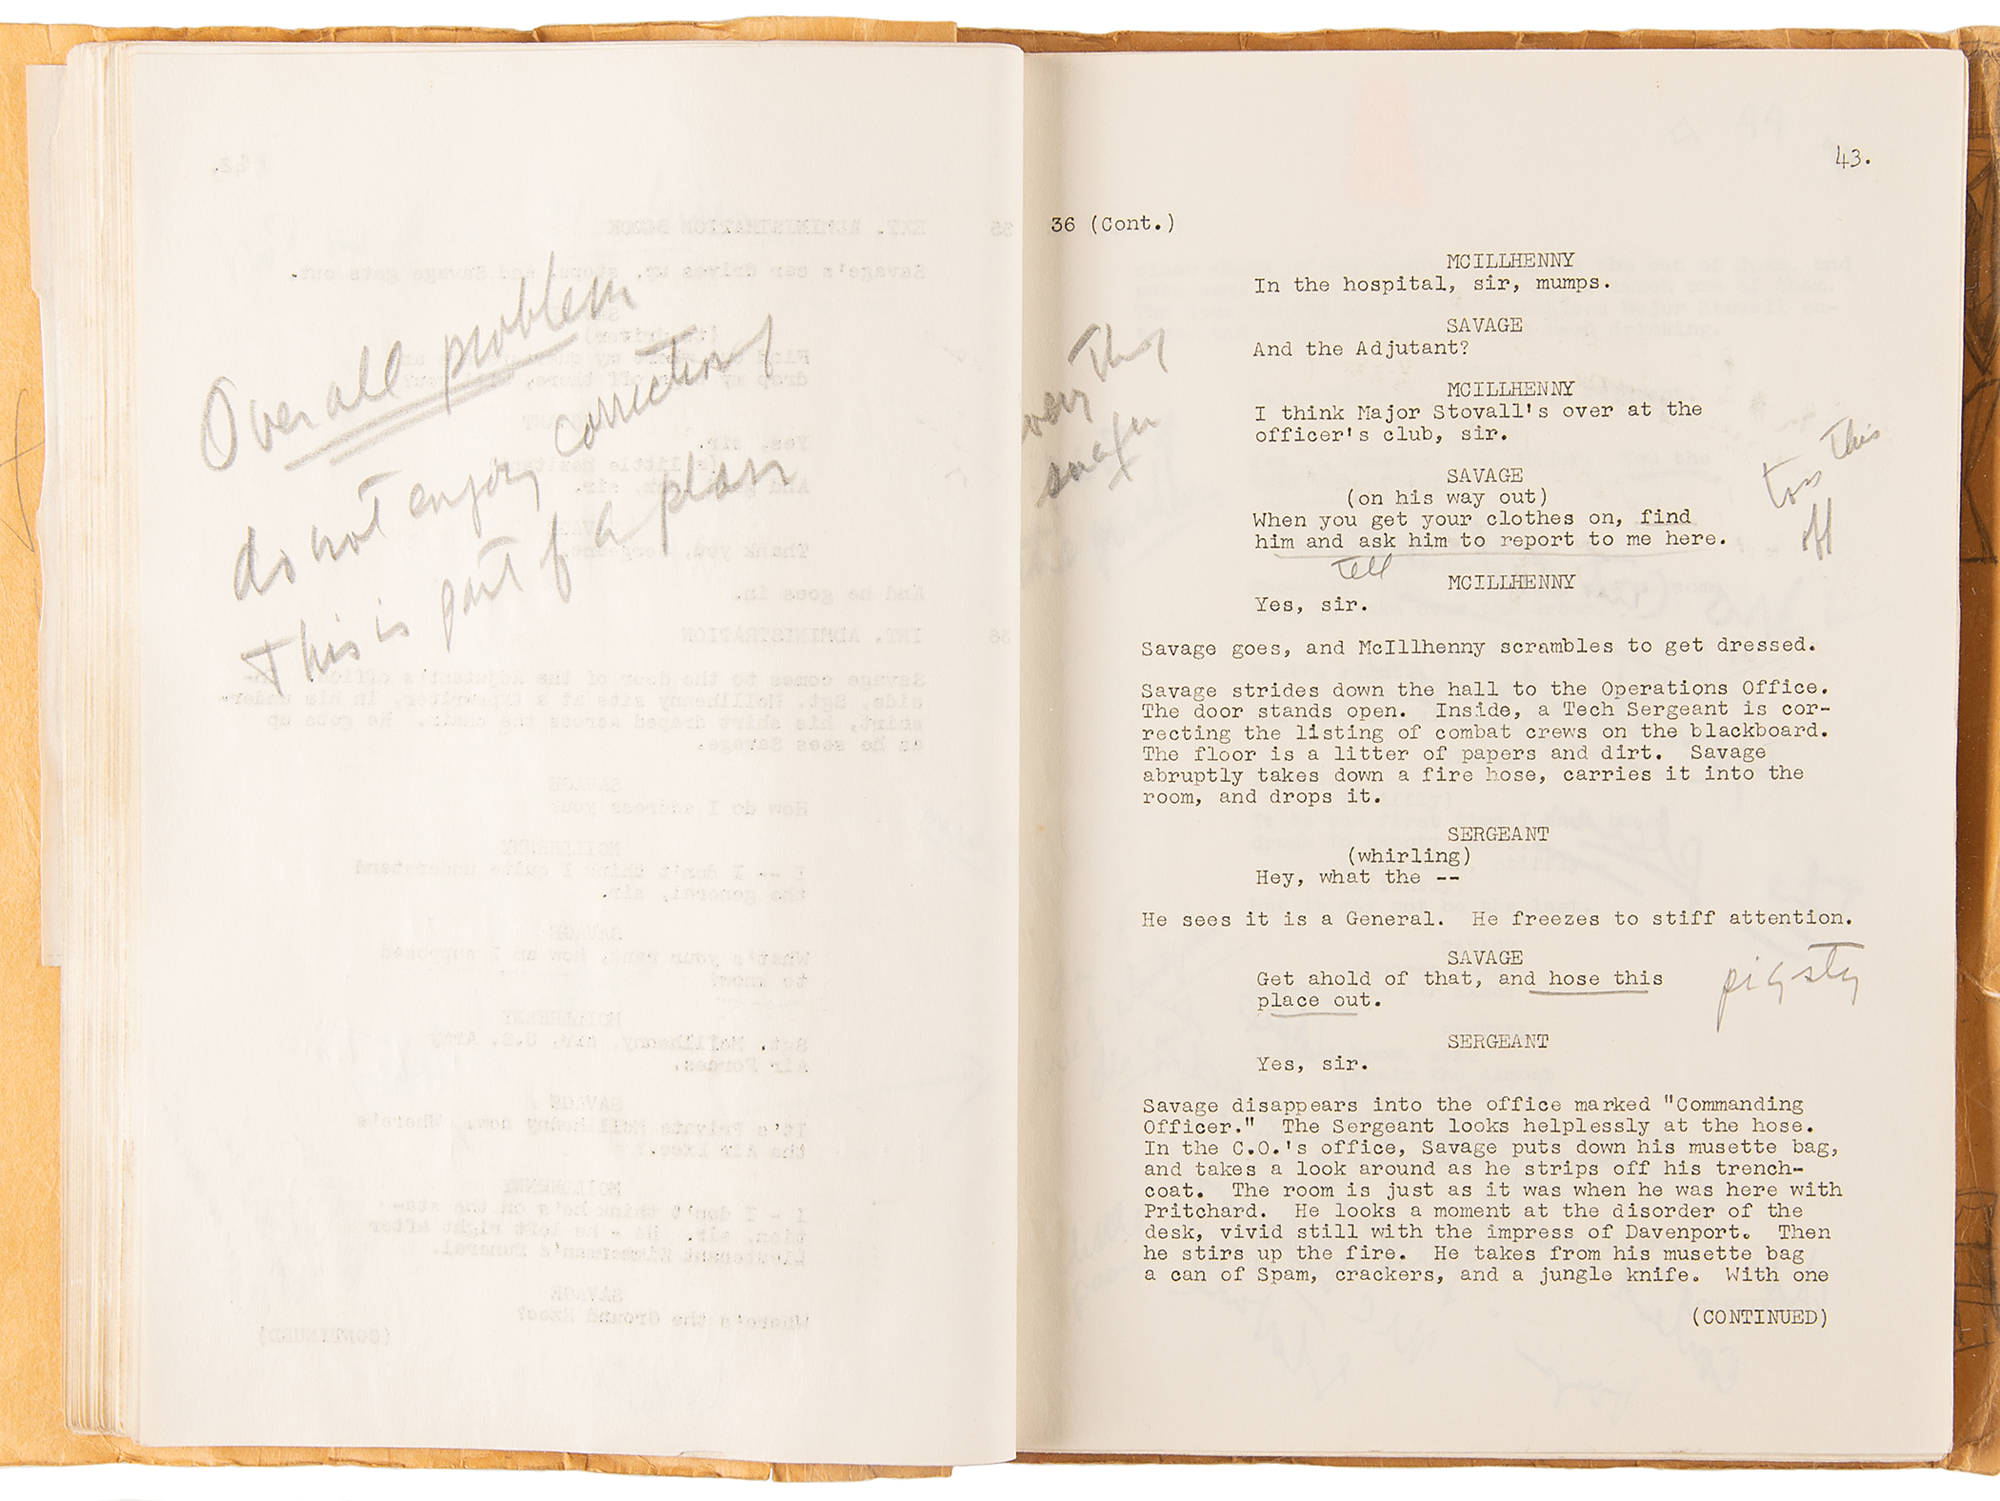 Over all problem
do not enjoy correction of
This is part of a plan
43.
36 (Cont.)
MCILLHENNY
In the hospital, sir, mumps.
SAVAGE
And the Adjutant?
MCILLHENNY
I think Major Stovall's over at the
officer's club, sir.
every Thing
snafu
SAVAGE
(on his way out)
When you get your clothes on, find
him and ask him to report to me here.
tell
toss This
off
MCILLHENNY
Yes, sir.
Savage goes, and McIllhenny scrambles to get dressed.
Savage strides down the hall to the Operations Office.
The door stands open. Inside, a Tech Sergeant is cor-
recting the listing of combat crews on the blackboard.
The floor is a litter of papers and dirt. Savage
abruptly takes down a fire hose, carries it into the
room, and drops it.
SERGEANT
(whirling)
Hey, what the --
He sees it is a General. He freezes to stiff attention.
SAVAGE
Get ahold of that, and hose this
place out.
pigsty
SERGEANT
Yes, sir.
Savage disappears into the office marked "Commanding
Officer." The Sergeant looks helplessly at the hose.
In the C.O.'s office, Savage puts down his musette bag,
and takes a look around as he strips off his trench-
coat. The room is just as it was when he was here with
Pritchard. He looks a moment at the disorder of the
desk, vivid still with the impress of Davenport. Then
he stirs up the fire. He takes from his musette bag
a can of Spam, crackers, and a jungle knife. With one
(CONTINUED)